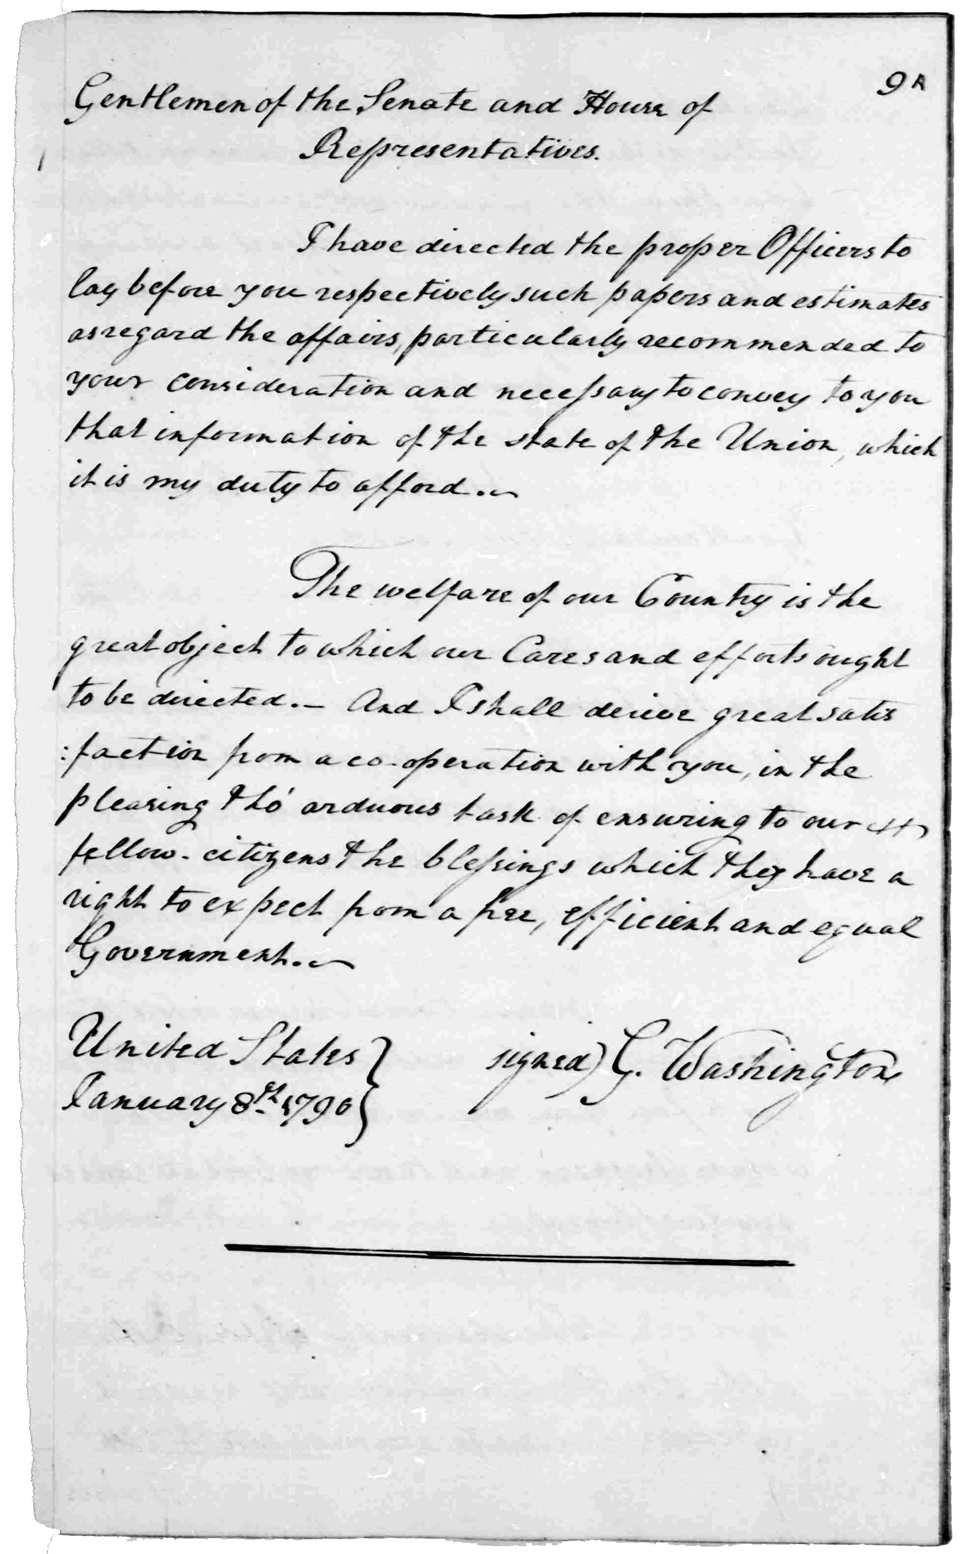 9A
Gentlemen of the Senate and House of
Representatives.
I have directed the proper Officers to
lay before you respectively such papers and estimates
as regard the affairs, particularly recommended to
your consideration and necessary to convey to you
that information of the state of the Union, which
it is my duty to afford.
The welfare of our Country is the
great object to which our Cares and efforts ought
to be directed. – And I shall derive great satis
:faction from a co-operation with you, in the
pleasing tho' arduous task of ensuring to our
fellow-citizens the blessings which they have a
right to expect from a free, efficient and equal
Government.
United States } signed) G. Washington
January 8th 1790 }